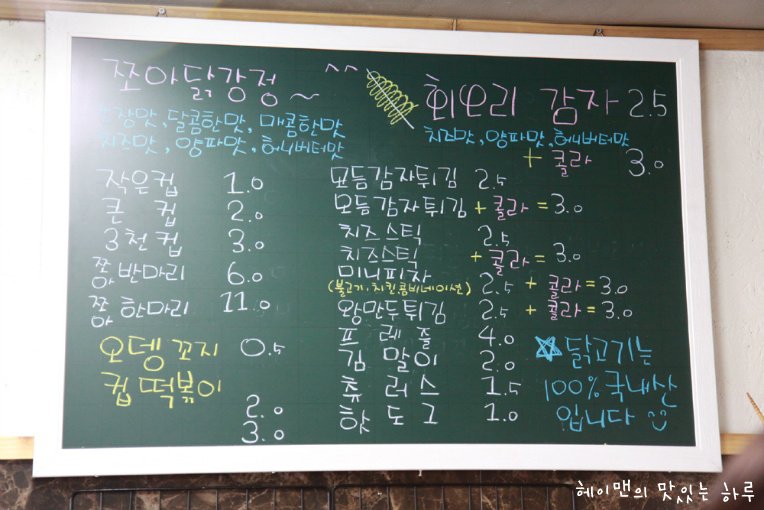 쪼아닭강정 ~
간장맛, 달콤한맛, 매콤한맛
치즈맛, 양파맛, 허니버터맛
작은컵 1.0
큰 컵 2.0
3천컵 3.0
쪼아 반마리 6.0
쪼아 한마리 11.0
오뎅꼬지 0.5
컵떡볶이
2.0
3.0
^^ 회오리 감자 2.5
치즈맛, 양파맛, 허니버터맛
+ 콜라 3.0
모듬감자튀김 2.5
모듬감자튀김 + 콜라 = 3.0
치즈스틱 2.5
치즈스틱 + 콜라 = 3.0
미니피자 2.5 + 콜라 = 3.0
(불고기, 치킨, 콤비네이션)
왕만두튀김 2.5 + 콜라 = 3.0
프레즐 4.0
김말이 2.0
츄러스 1.5
핫도그 1.0
☆ 닭고기는
100% 국내산
입니다
헤이맨의 맛있는 하루